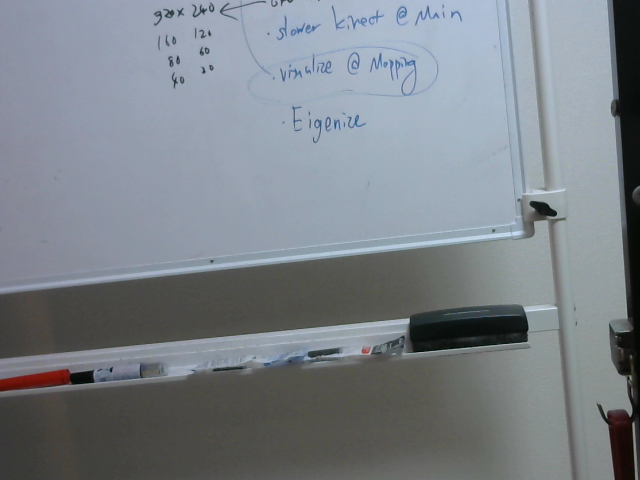 320 x 240 ←
160 120
80 60
40 20
· slower kinect @ Main
· visualize @ Mapping
· Eigenize